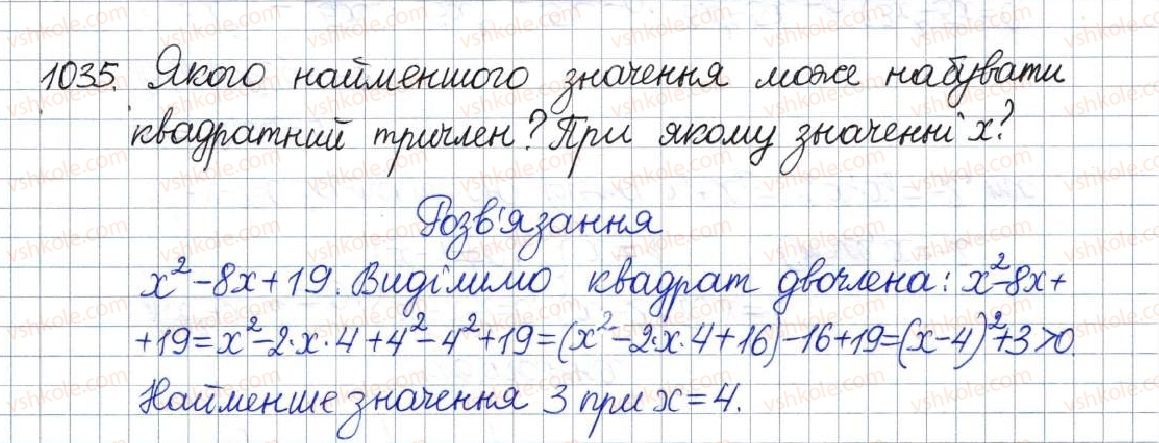 1035. Якого найменшого значення може набувати
квадратний тричлен? При якому значенні x?
Розв'язання
x²-8x+19. Виділимо квадрат двочлена: x²-8x+
+19=x²-2·x·4+4²-4²+19=(x²-2·x·4+16)-16+19=(x-4)²+3>0.
Найменше значення 3 при x=4.